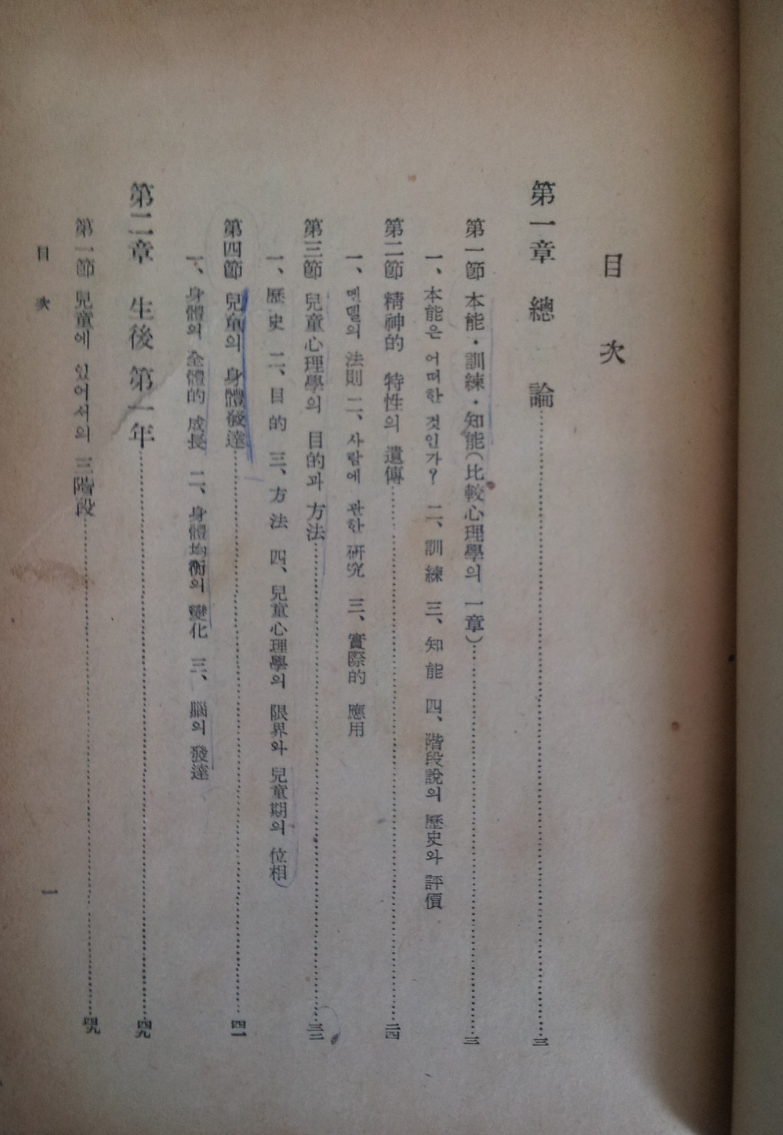 目 次
第一章 總 論 三
第一節 本能・訓練・知能(比較心理學의 一章) 三
一、本能은 어떠한 것인가? 二、訓練 三、知能 四、階段說의 歷史와 評價
第二節 精神的 特性의 遺傳 二四
一、멘델의 法則 二、사람에 관한 硏究 三、實際的 應用
第三節 兒童心理學의 目的과 方法 三二
一、歷史 二、目的 三、方法 四、兒童心理學의 限界와 兒童期의 位相
第四節 兒童의 身體發達 四一
一、身體의 全體的 成長 二、身體均衡의 變化 三、腦의 發達
第二章 生後 第一年 四九
第一節 兒童에 있어서의 三階段 四九
目 次
一